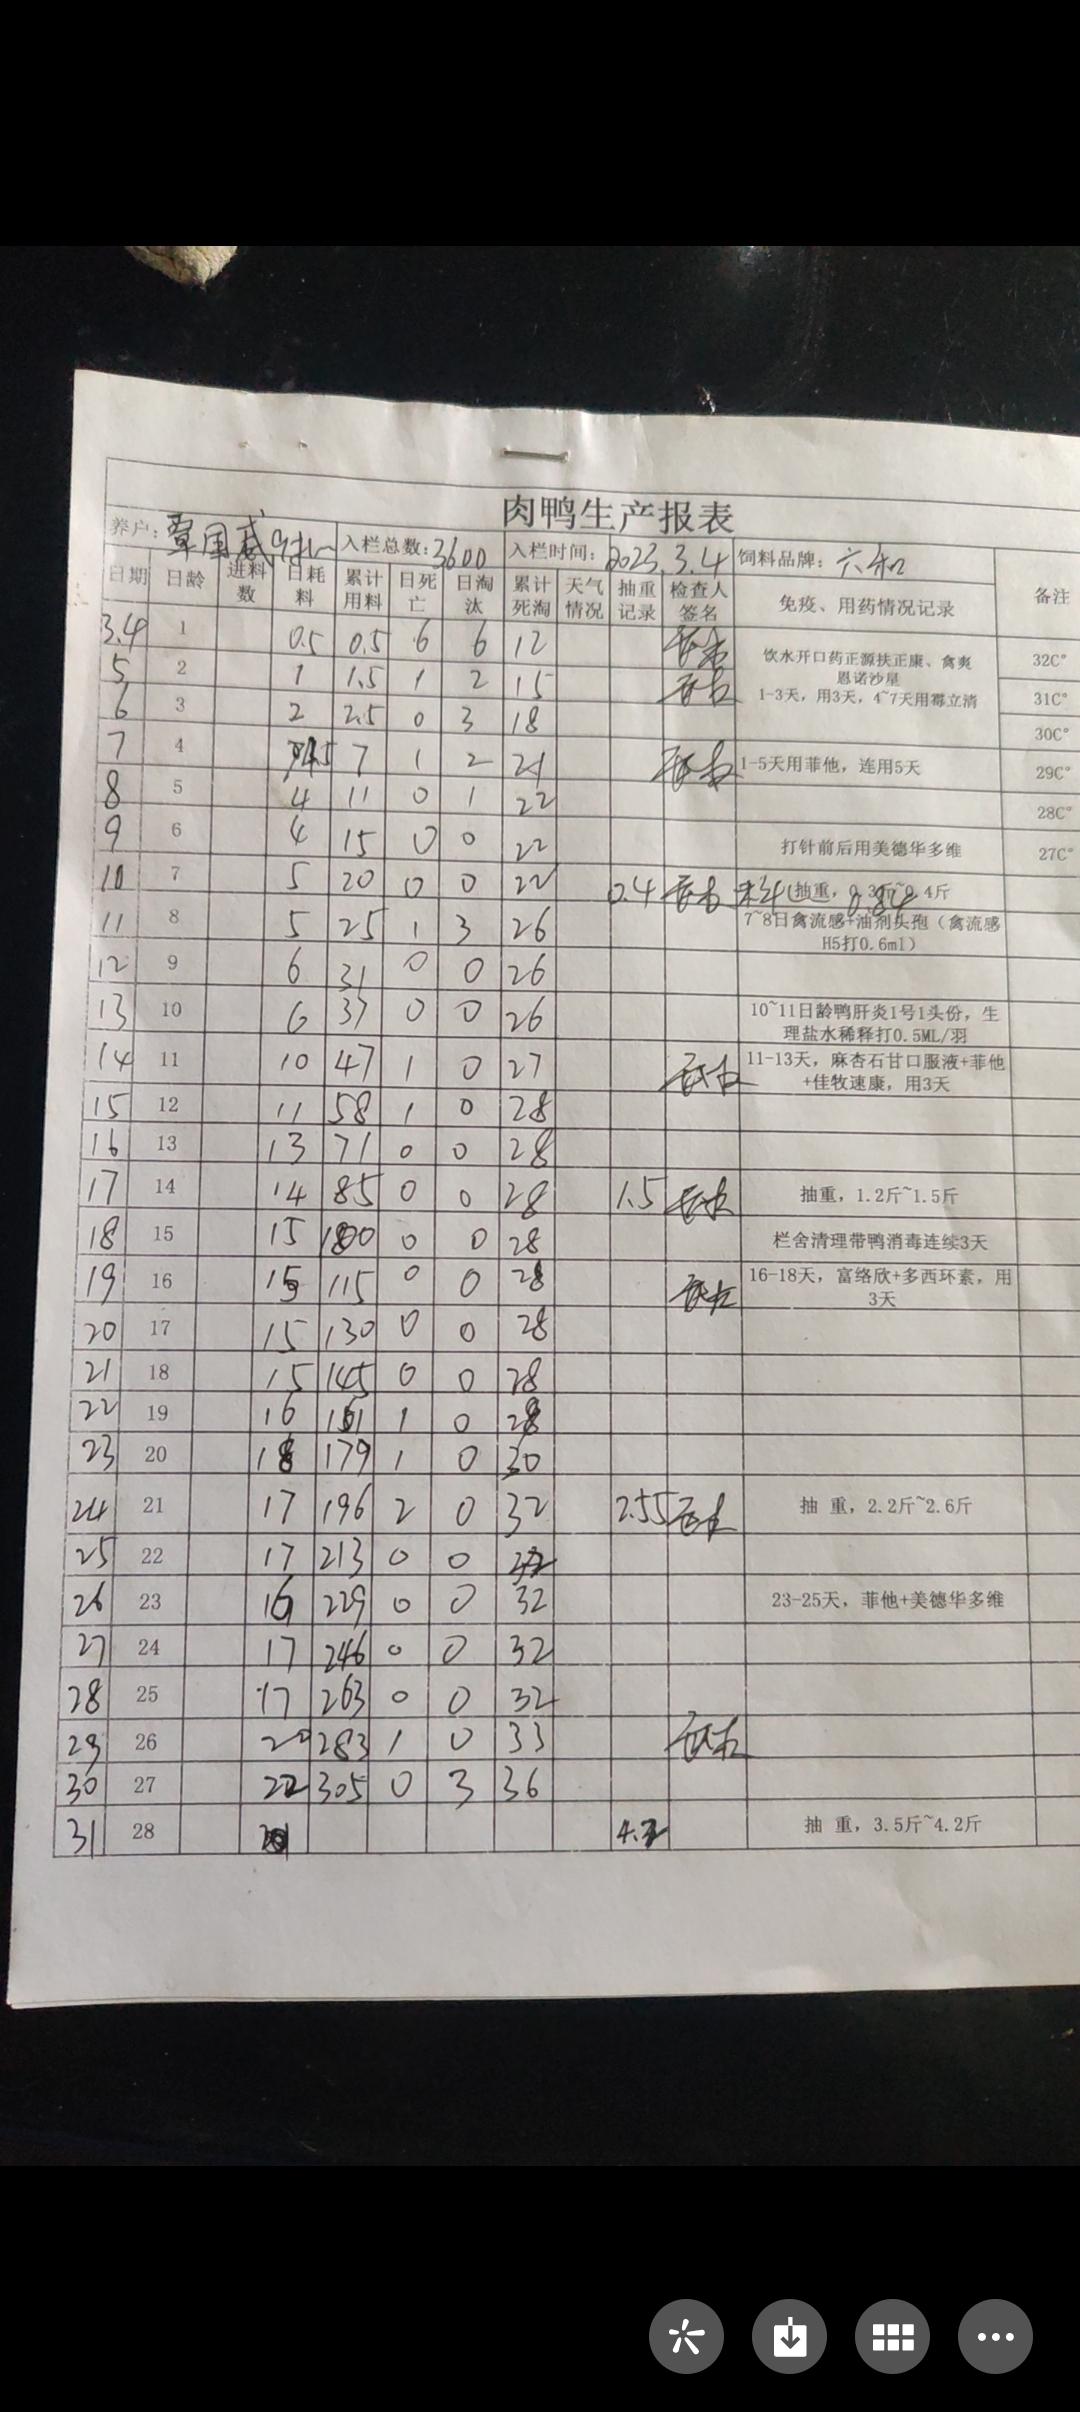 肉鸭生产报表
养户: 覃国威 入栏总数: 3600 入栏时间: 2023.3.4 饲料品牌: 六和
日期 日龄 进料数 日耗料 累计用料 日死亡 日淘汰 累计死淘 天气情况 抽重记录 检查人签名 免疫、用药情况记录 备注
3.4 1 0.5 0.5 6 6 12 饮水开口药正源扶正康、禽爽 32C°
恩诺沙星
5 2 1 1.5 1 2 15 1-3天，用3天，4~7天用霉立清 31C°
6 3 2 2.5 0 3 18 30C°
7 4 4.5 7 1 2 21 1-5天用菲他，连用5天 29C°
8 5 4 11 0 1 22 28C°
9 6 4 15 0 0 22 打针前后用美德华多维 27C°
10 7 5 20 0 0 22 0.4 抽重，0.3斤~0.4斤 料比 0.84
11 8 5 25 1 3 26 7~8日禽流感+油剂头孢（禽流感
H5打0.6ml）
12 9 6 31 0 0 26
13 10 6 37 0 0 26 10~11日龄鸭肝炎1号1头份，生
理盐水稀释打0.5ML/羽
14 11 10 47 1 0 27 11-13天，麻杏石甘口服液+菲他
+佳牧速康，用3天
15 12 11 58 1 0 28
16 13 13 71 0 0 28
17 14 14 85 0 0 28 1.5 抽重，1.2斤~1.5斤
18 15 15 100 0 0 28 栏舍清理带鸭消毒连续3天
19 16 15 115 0 0 28 16-18天，富络欣+多西环素，用
3天
20 17 15 130 0 0 28
21 18 15 145 0 0 28
22 19 16 161 1 0 28
23 20 18 179 1 0 30
24 21 17 196 2 0 32 2.55 抽 重，2.2斤~2.6斤
25 22 17 213 0 0 32
26 23 16 229 0 0 32 23-25天，菲他+美德华多维
27 24 17 246 0 0 32
28 25 17 263 0 0 32
29 26 20 283 1 0 33
30 27 22 305 0 3 36
31 28 抽 重，3.5斤~4.2斤